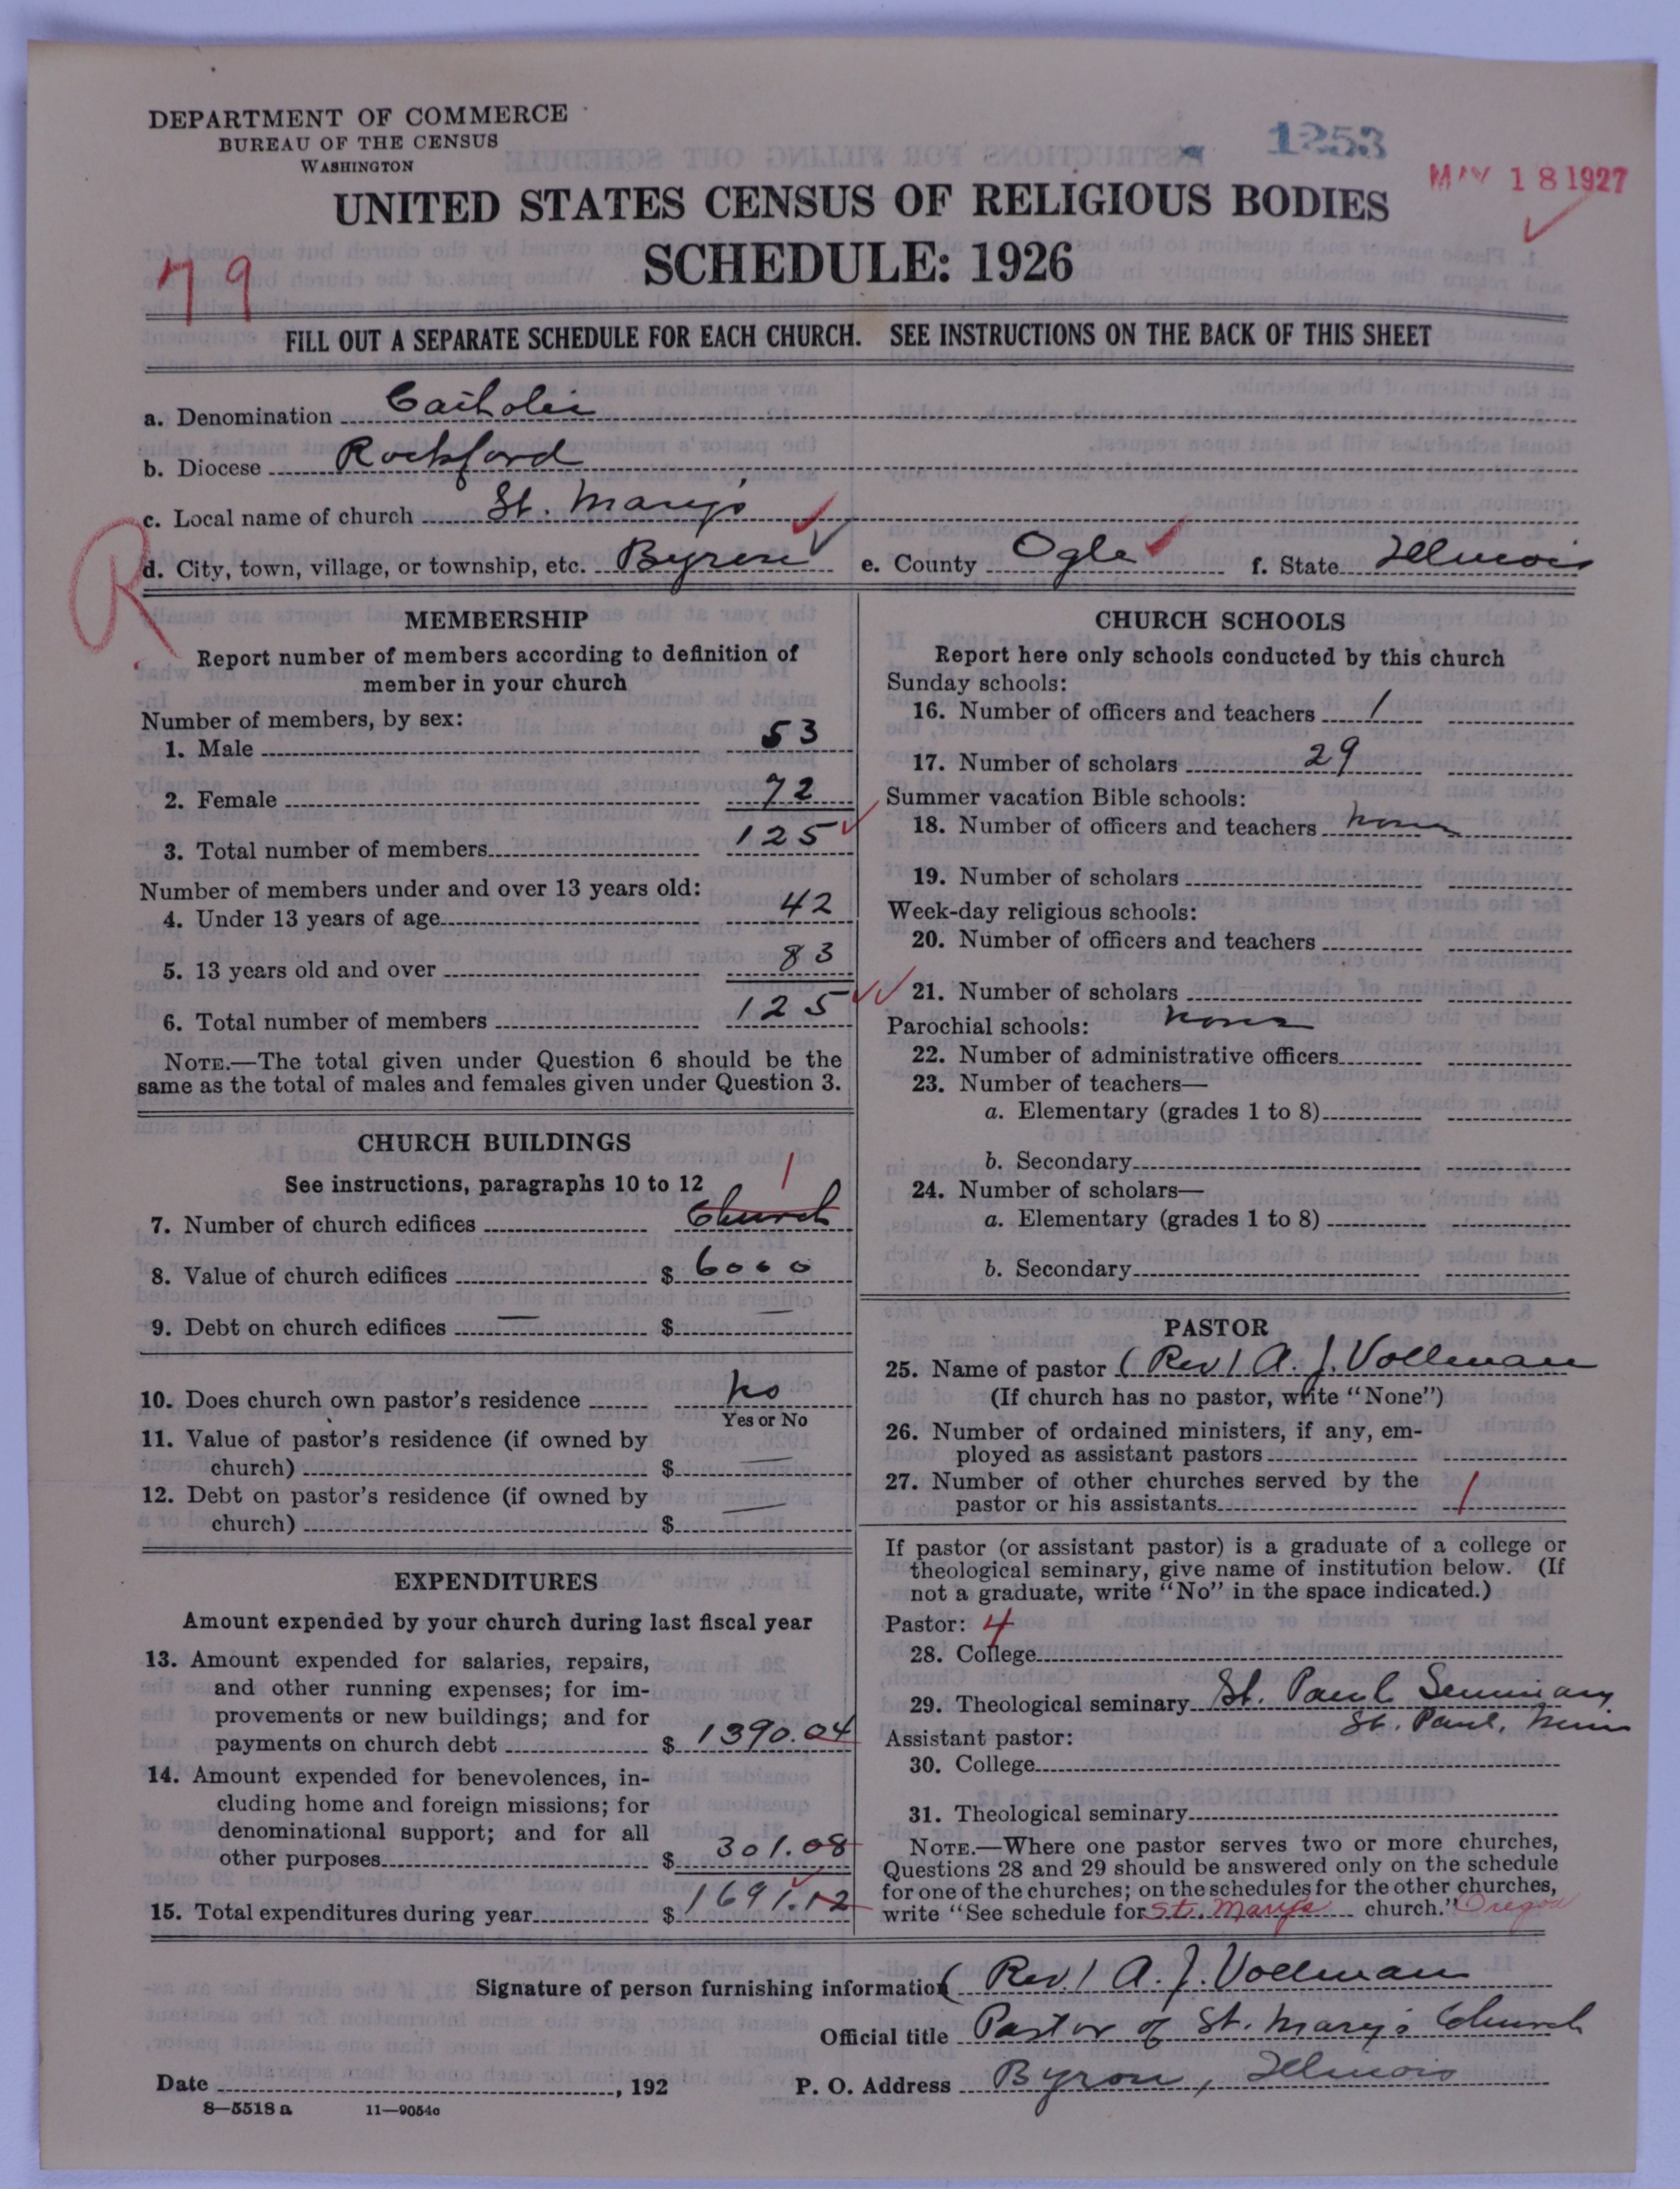 DEPARTMENT OF COMMERCE
BUREAU OF THE CENSUS
WASHINGTON
1253
MAY 18 1927
UNITED STATES CENSUS OF RELIGIOUS BODIES
SCHEDULE: 1926
79
FILL OUT A SEPARATE SCHEDULE FOR EACH CHURCH. SEE INSTRUCTIONS ON THE BACK OF THIS SHEET
a. Denomination Catholic
b. Diocese Rockford
c. Local name of church St. Mary's
R
d. City, town, village, or township, etc. Byron e. County Ogle f. State Illinois
MEMBERSHIP
Report number of members according to definition of
member in your church
Number of members, by sex:
1. Male 53
2. Female 72
3. Total number of members 125
Number of members under and over 13 years old:
4. Under 13 years of age 42
5. 13 years old and over 83
6. Total number of members 125
NOTE.—The total given under Question 6 should be the
same as the total of males and females given under Question 3.
CHURCH BUILDINGS
See instructions, paragraphs 10 to 12
1
7. Number of church edifices Church
8. Value of church edifices $ 6000
9. Debt on church edifices — $ —
10. Does church own pastor's residence No
Yes or No
11. Value of pastor's residence (if owned by
church) $ —
12. Debt on pastor's residence (if owned by
church) $ —
EXPENDITURES
Amount expended by your church during last fiscal year
13. Amount expended for salaries, repairs,
and other running expenses; for im-
provements or new buildings; and for
payments on church debt $ 1390.04
14. Amount expended for benevolences, in-
cluding home and foreign missions; for
denominational support; and for all
other purposes $ 301.08
15. Total expenditures during year $ 1691.12
CHURCH SCHOOLS
Report here only schools conducted by this church
Sunday schools:
16. Number of officers and teachers 1
17. Number of scholars 29
Summer vacation Bible schools:
18. Number of officers and teachers none
19. Number of scholars
Week-day religious schools:
20. Number of officers and teachers
21. Number of scholars
Parochial schools: none
22. Number of administrative officers
23. Number of teachers—
a. Elementary (grades 1 to 8)
b. Secondary
24. Number of scholars—
a. Elementary (grades 1 to 8)
b. Secondary
PASTOR
25. Name of pastor (Rev) A. J. Vollman
(If church has no pastor, write "None")
26. Number of ordained ministers, if any, em-
ployed as assistant pastors
27. Number of other churches served by the
pastor or his assistants 1
If pastor (or assistant pastor) is a graduate of a college or
theological seminary, give name of institution below. (If
not a graduate, write "No" in the space indicated.)
Pastor: 4
28. College
29. Theological seminary St. Paul Seminary
St. Paul, Minn
Assistant pastor:
30. College
31. Theological seminary
NOTE.—Where one pastor serves two or more churches,
Questions 28 and 29 should be answered only on the schedule
for one of the churches; on the schedules for the other churches,
write "See schedule for St. Marys church." Oregon
Signature of person furnishing information (Rev) A. J. Vollman
Official title Pastor of St. Mary's Church
Date , 192 P. O. Address Byron, Illinois
8—5518 a 11—9054c